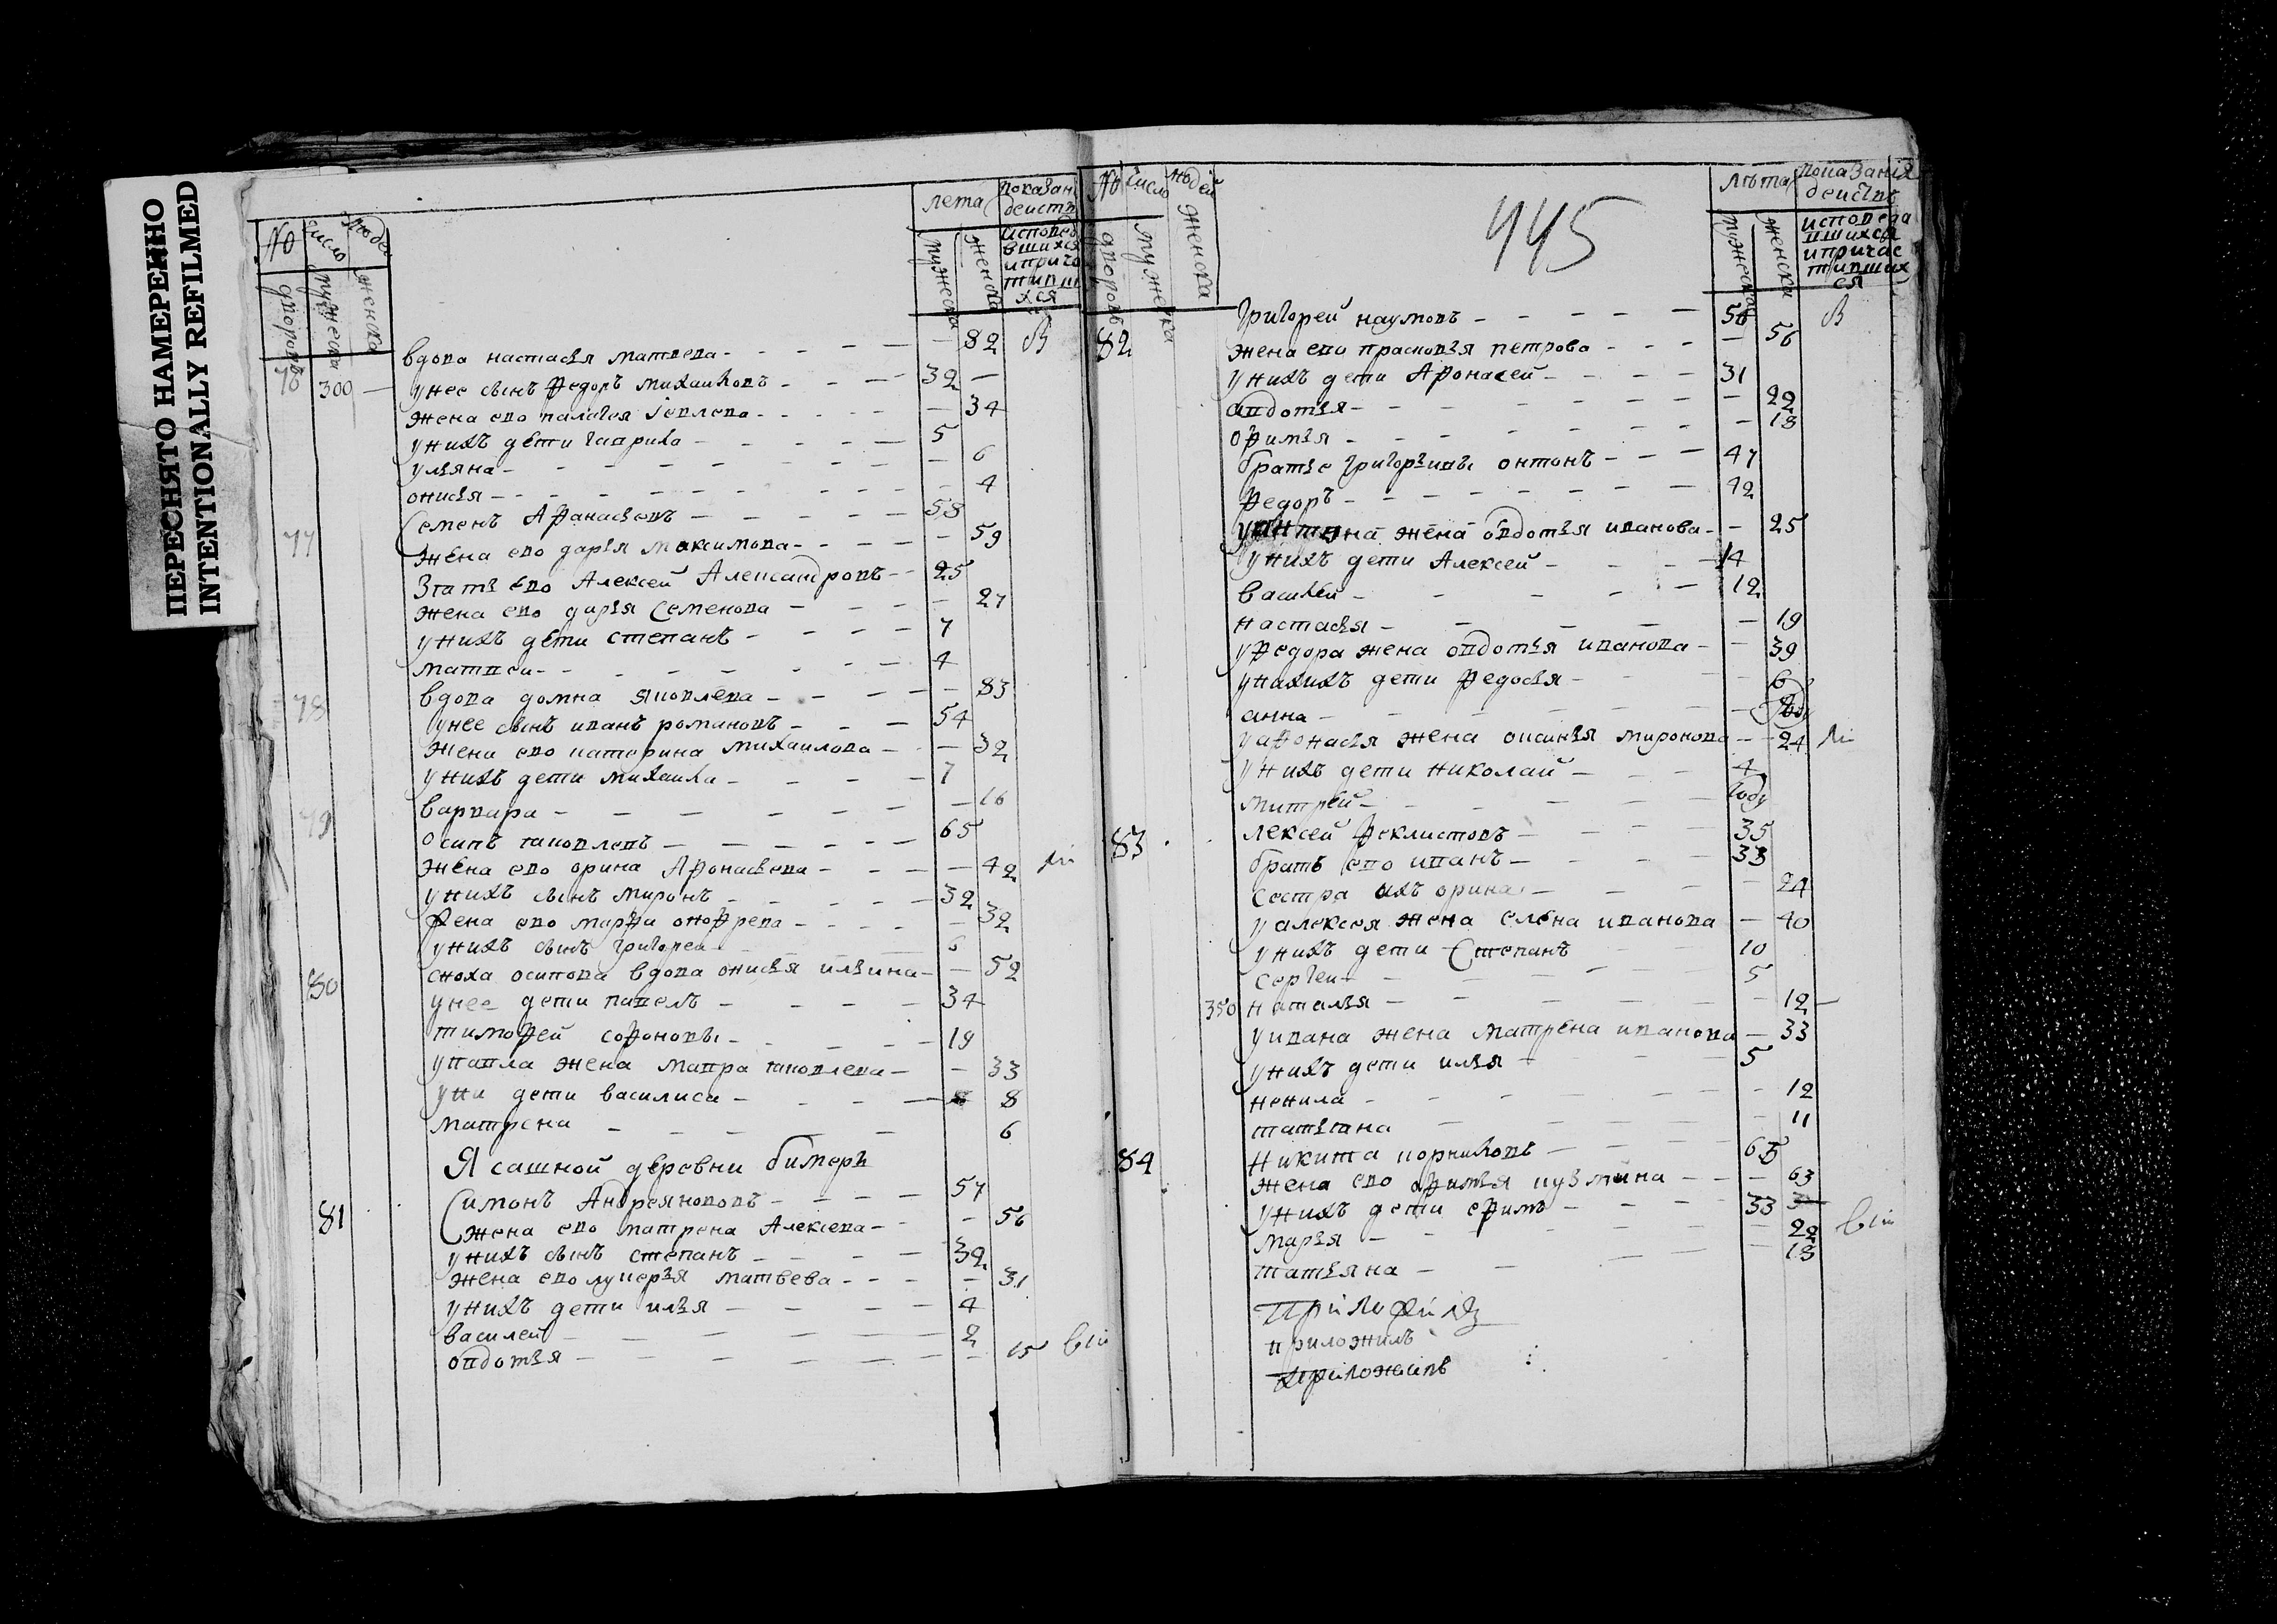 ПЕРЕСНЯТО НАМЕРЕННО
INTENTIONALLY REFILMED
№ число людей
лета показан деиств
дворовъ мужеска женска
мужеска женска исповедавшихся и причастившихся
76 вдова настасья матвева - 82 В
300 унее сынъ федоръ михаиловъ - 32
жена ево палагея - 34
унихъ дети гаврила - 5
ульяна - 6
онисья - 4
77 Семенъ Афанасьевъ - 58
жена ево дарья максимова - 59
Зять ево Алексей Александровъ - 25
жена ево дарья Семенова - 27
унихъ дети степанъ - 7
матвеи - 4
78 вдова домна яковлева - 83
унее сынъ иванъ романовъ - 54
жена ево катерина михаилова - 32
унихъ дети михаила - 7
варвара - 16
79 осипъ яковлевъ - 65
жена ево орина Афонасьева - 42
унихъ сынъ миронъ - 32
жена ево марфа онофрева - 32
унихъ сынъ григореи - 6
80 сноха осипова вдова онисья ильина - 52
унее дети павелъ - 34
тимофей софоновы - 19
упавла жена мавра яковлева - 33
уни дети василиса - 8
матрена - 6
Ясашной деревни бимерь
81 Симонъ Андреяновъ - 57
жена ево матрена Алексева - 56
унихъ сынъ степанъ - 32
жена ево лукерья матвева - 31
унихъ дети илья - 4
василей - 2
овдотья - 15
№ число людей
445
лѣта показания деиствъ
дворовъ мужеска женска
мужеска женска исповедавшихся и причастившихся
82 Григорей наумовъ - 56 В
жена ево прасковья петрова - 56
унихъ дети Афонасей - 31
авдотья - 22
офимья - 18
братье григорьивы онтонъ - 47
федоръ - 42
уонтона жена овдотья иванова - 25
унихъ дети Алексей - 14
василей - 12
настасья - 19
уфедора жена овдотья иванова - 39
унихъ дети федосья - 6
анна - году
уафонасья жена оксинья миронова - 24
унихъ дети николай - 4
митрей - году
83 лексей феклистовъ - 35
братъ ево иванъ - 33
Сестра ихъ орина - 24
уалексея жена елена иванова - 40
унихъ дети Степанъ 10
Сергеи - 5
350 наталья - 12
уивана жена матрена иванова - 33
унихъ дети илья - 5
ненила - 12
татьяна 11
84 никита корниловъ - 65
жена ево офимья кузмина - 63
унихъ дети ефимъ - 33
марья - 22
татьяна - 18
приложилъ